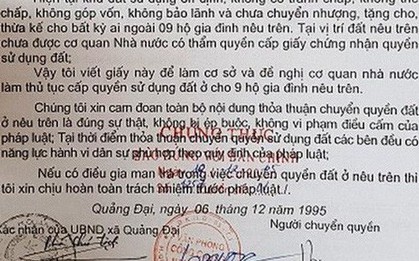 Hiện tại khu đất sử dụng ổn định, không có tranh chấp, không thế
chấp, không góp vốn, không bảo lãnh và chưa chuyển nhượng, tặng cho,
thừa kế cho bất kỳ ai ngoài 09 hộ gia đình nêu trên. Tại vị trí đất nêu trên
chưa được cơ quan Nhà nước có thẩm quyền cấp giấy chứng nhận quyền
sử dụng đất;
Vậy tôi viết giấy này để làm cơ sở và để đề nghị cơ quan nhà nước
làm thủ tục cấp quyền sử dụng đất ở cho 9 hộ gia đình nêu trên.
Chúng tôi xin cam đoan toàn bộ nội dung thỏa thuận chuyển quyền đất
ở nêu trên là đúng sự thật, không bị ép buộc, không vi phạm điều cấm của
pháp luật; Tại thời điểm thỏa thuận chuyển quyền sử dụng đất các bên đều có
năng lực hành vi dân sự phù hợp theo quy định của pháp luật;
CHỨNG THỰC
SAO ĐÚNG VỚI BẢN CHÍNH
Nếu có điều gia man trá trong việc chuyển quyền đất ở nêu trên thì
tôi xin chịu hoàn toàn trách nhiệm trước pháp luật./.
Quảng Đại, ngày 06 tháng 12 năm 1995
xác nhận của UBND xã Quảng Đại
Người chuyển quyền